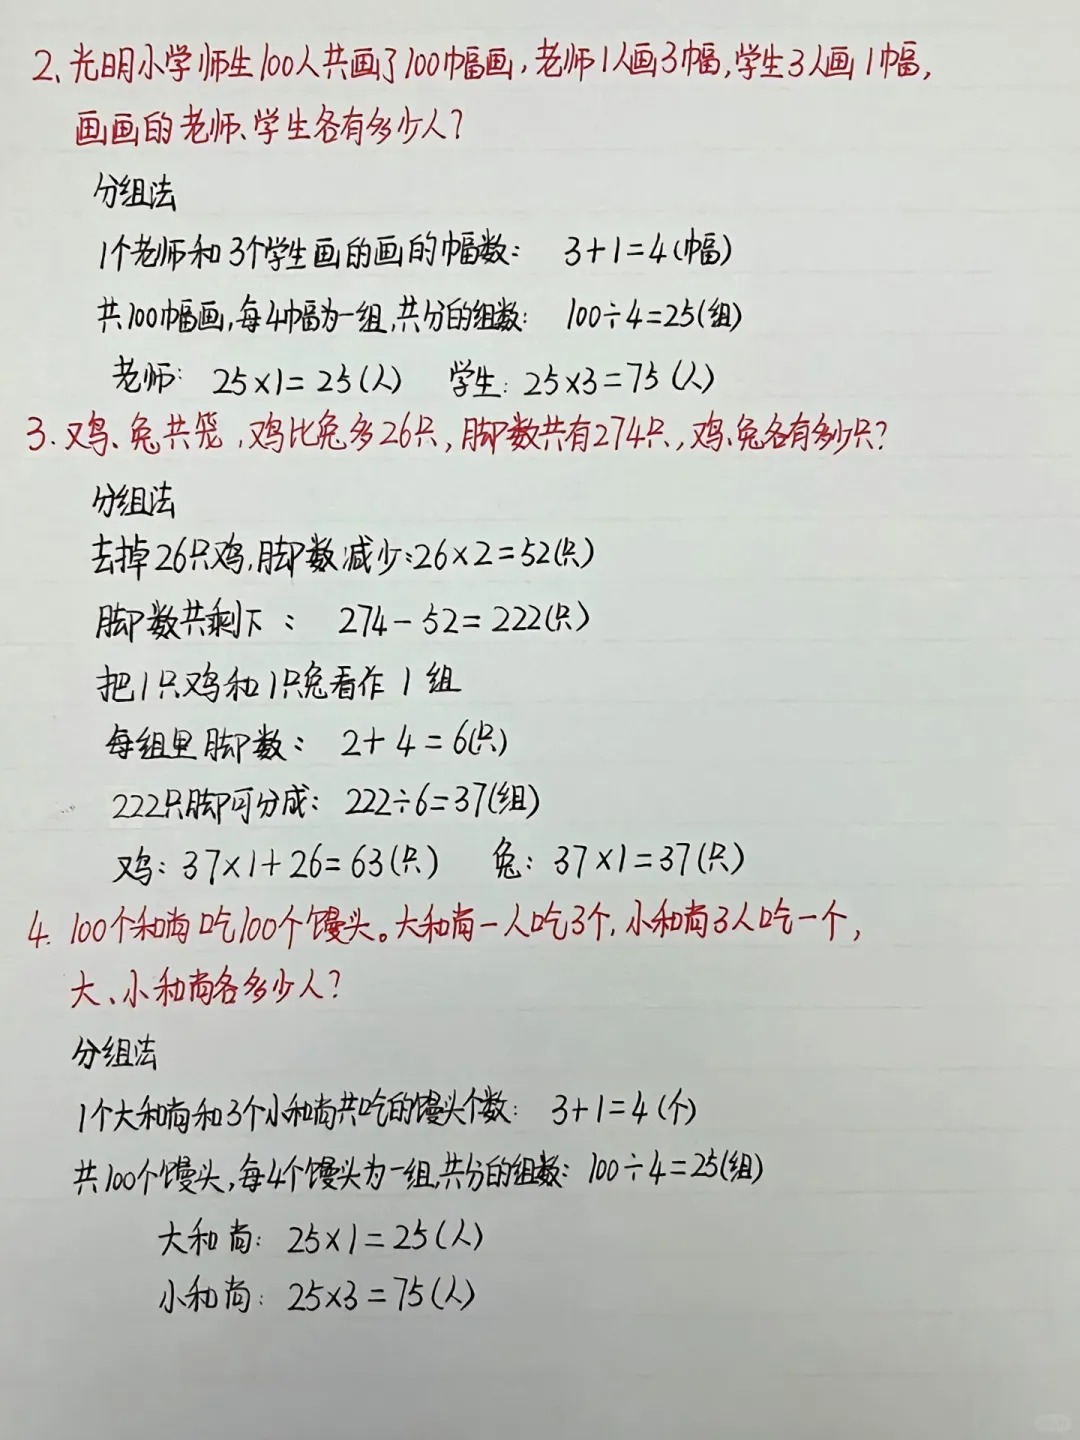 2、光明小学师生100人共画了100幅画,老师1人画3幅,学生3人画1幅,
画画的老师、学生各有多少人?
分组法
1个老师和3个学生画的画的幅数: 3+1=4(幅)
共100幅画,每4幅为一组,共分的组数: 100÷4=25(组)
老师: 25×1=25(人) 学生: 25×3=75(人)
3.鸡、兔共笼,鸡比兔多26只,脚数共有274只,鸡、兔各有多少只?
分组法
去掉26只鸡,脚数减少:26×2=52(只)
脚数共剩下: 274-52=222(只)
把1只鸡和1只兔看作1组
每组里脚数: 2+4=6(只)
222只脚可分成: 222÷6=37(组)
鸡: 37×1+26=63(只) 兔: 37×1=37(只)
4. 100个和尚吃100个馒头。大和尚一人吃3个,小和尚3人吃一个,
大、小和尚各多少人?
分组法
1个大和尚和3个小和尚共吃的馒头个数: 3+1=4(个)
共100个馒头,每4个馒头为一组,共分的组数: 100÷4=25(组)
大和尚: 25×1=25(人)
小和尚: 25×3=75(人)